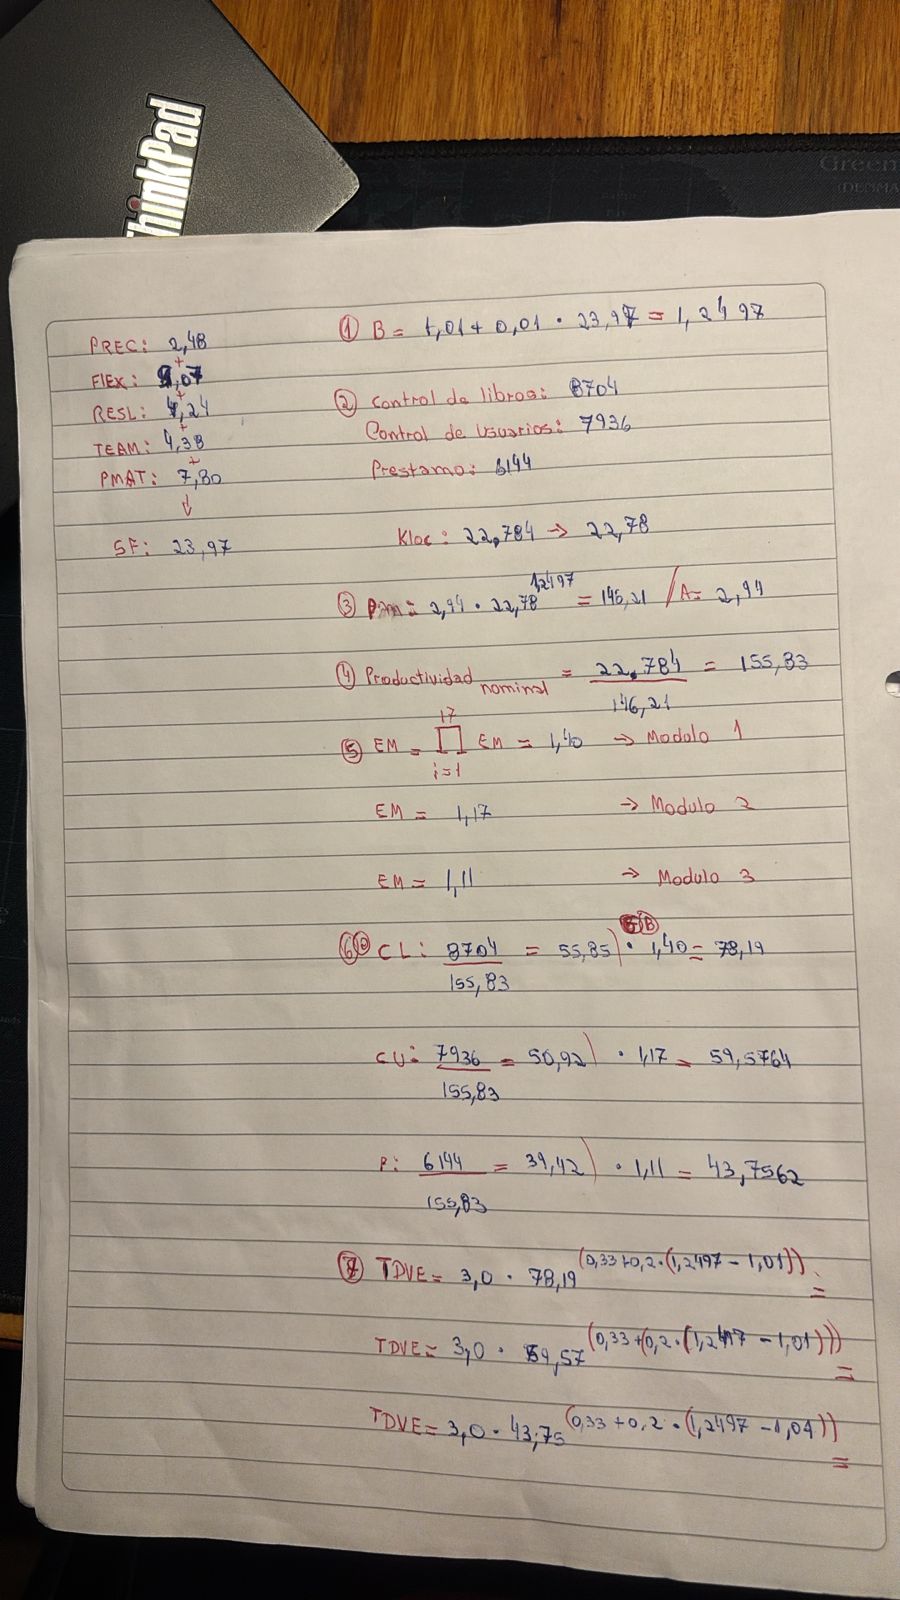 ThinkPad
Green
(DENMA
PREC: 2,48
+
FlEX: 5,07
+
RESL: 4,24
+
TEAM: 4,38
+
PMAT: 7,80
↓
SF: 23,97
① B = 1,01 + 0,01 • 23,97 = 1,2497
② Control de libros: 8704
Control de Usuarios: 7936
Prestamo: 6144
Kloc: 22,784 → 22,78
③ Pm = 2,94 • 22,78^1,2497 = 146,21 / A = 2,94
④ Productividad nominal = 22.784 / 146,21 = 155,83
⑤ EM = ∏ (i=1, 17) EM = 1,40 → Modulo 1
EM = 1,17 → Modulo 2
EM = 1,11 → Modulo 3
⑥ CL: 8704 / 155,83 = 55,85) • 1,40 = 78,19
CU: 7936 / 155,83 = 50,92) • 1,17 = 59,5764
P: 6144 / 155,83 = 39,42) • 1,11 = 43,7562
⑦ TDVE = 3,0 • 78,19^(0,33+0,2•(1,2497 - 1,01)) =
TDVE = 3,0 • 59,57^(0,33+(0,2•(1,2497 - 1,01))) =
TDVE = 3,0 • 43,75^(0,33+0,2•(1,2497 - 1,01)) =